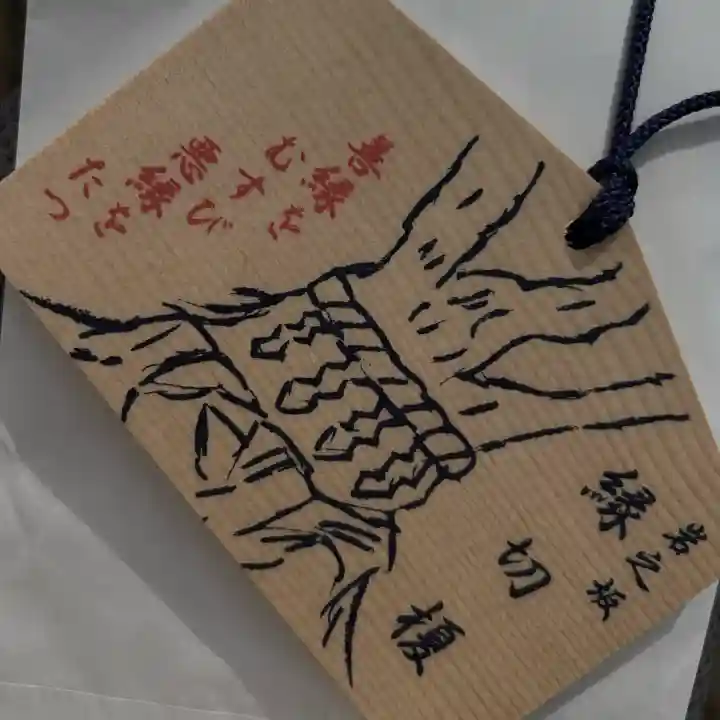 岩之坂
縁切榎
善縁を
むすび
悪縁を
たつ